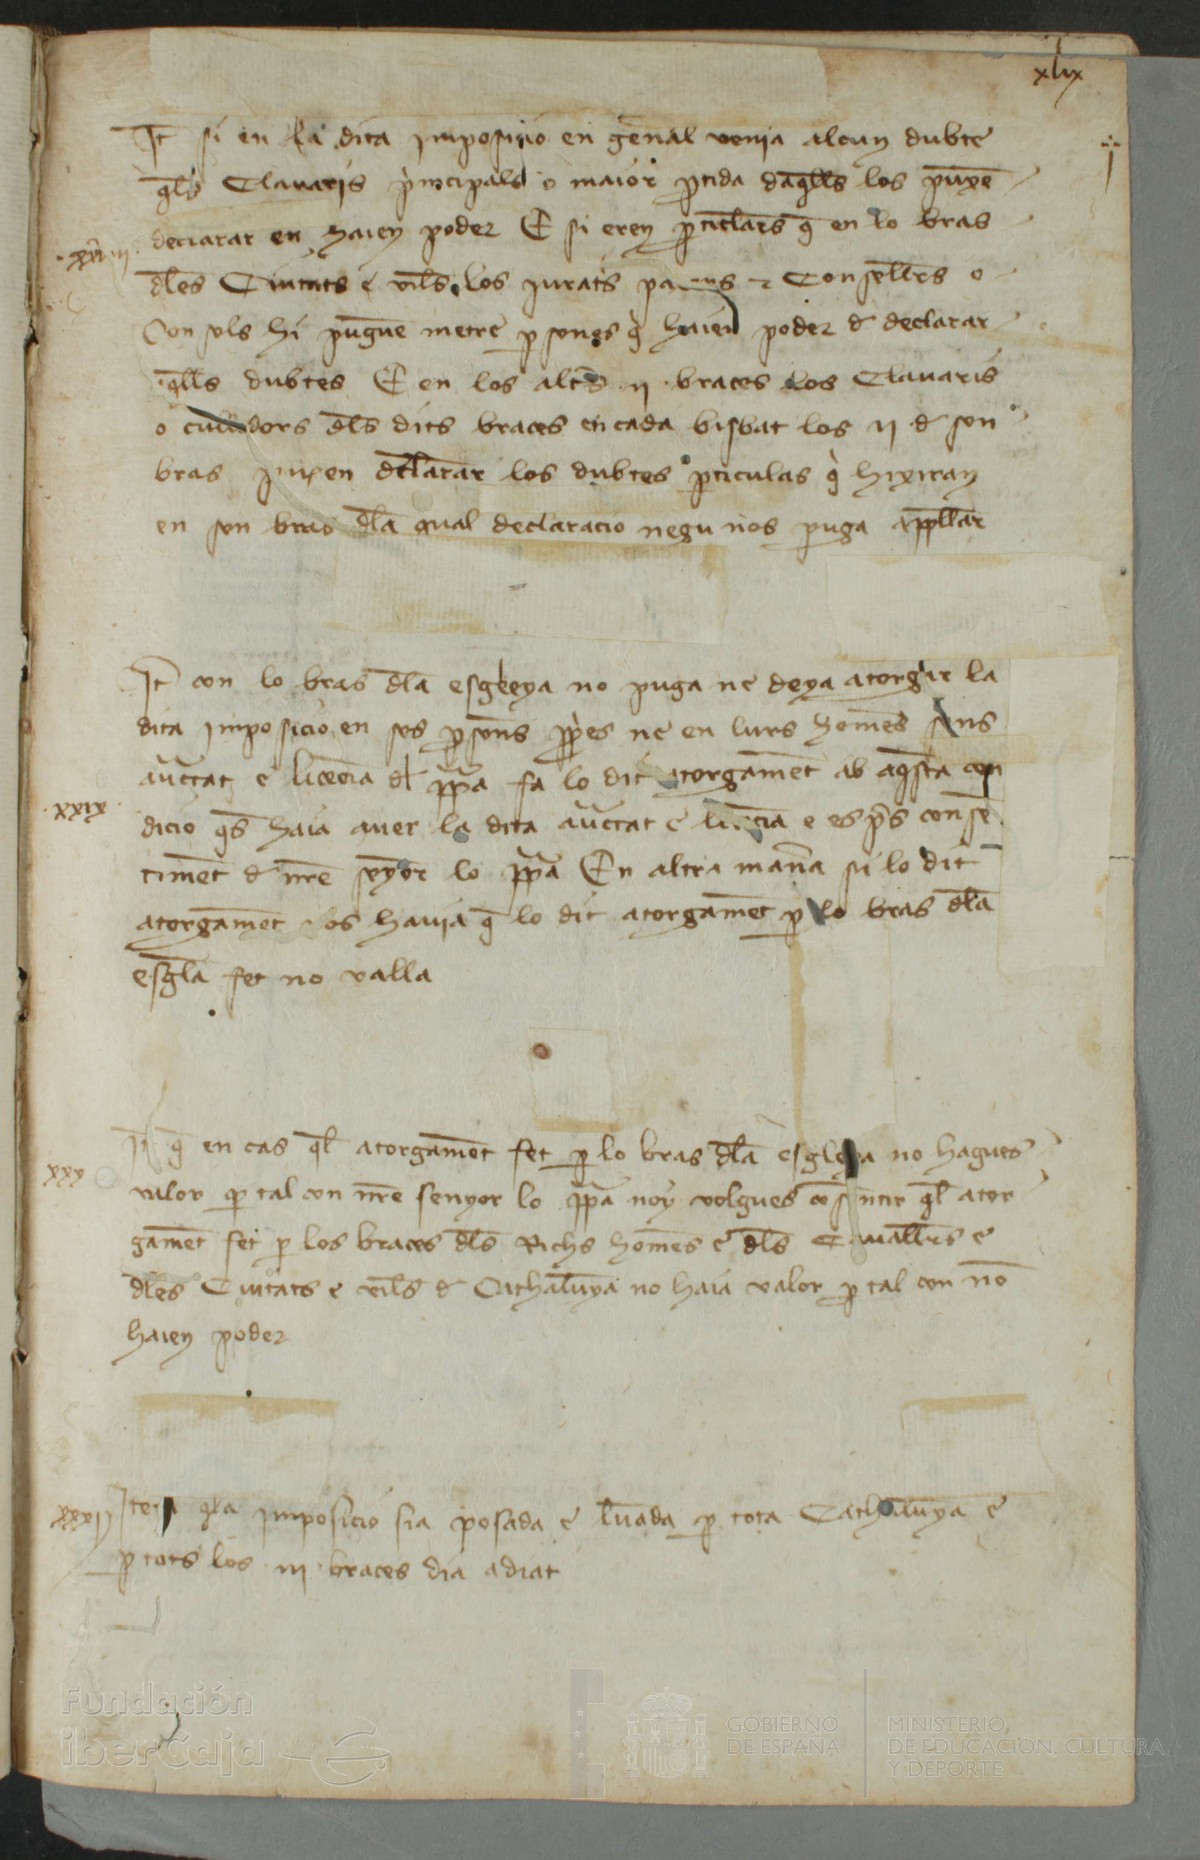 xlix
It si en la dita imposicio en genal venia alcun dubte
qls Clauaris principals o maior ptida daqlls los puxen
declarar en haien poder E si eren pticlars q en lo bras
dles Ciutats e viles los jurats pahers e Consellers o
Consols hi puguen metre psones q haien poder d declarar
qlls dubtes E en los altres ii braces los Clauaris
o cullidors dls dits braces en cada bisbat los ii d son
bras puxen dclarar los dubtes pticulas q hixiran
en son bras dla qual declaracio negu nos puga appllar
It con lo bras dla esgleya no puga ne deya atorgar la
dita imposicio en ses psons ppies ne en lurs homens sens
auctat e licencia dl ppa fa lo dit atorgament ab aqsta con
xxix
dicio qs haia auer la dita auctat e licencia e espres consen
timent d nre senyor lo ppa En altra mana si lo dit
atorgament nos hauia q lo dit atorgament p lo bras dla
esgla fet no valla
It q en cas ql atorgament fet p lo bras dla esgleya no hagues
xxx
valor p tal con nre senyor lo ppa noy volgues consentir ql ator
gament fet p los braces dls Richs homens e dls Cauallers e
dles Ciutats e viles d Cathalunya no haia valor p tal con no
haien poder
xxxi Item qla imposicio sia posada e leuada p tota Cathalunya e
p tots los iii braces dia adiat
Fundación
iberCaja
GOBIERNO
DE ESPAÑA
MINISTERIO
DE EDUCACIÓN, CULTURA
Y DEPORTE